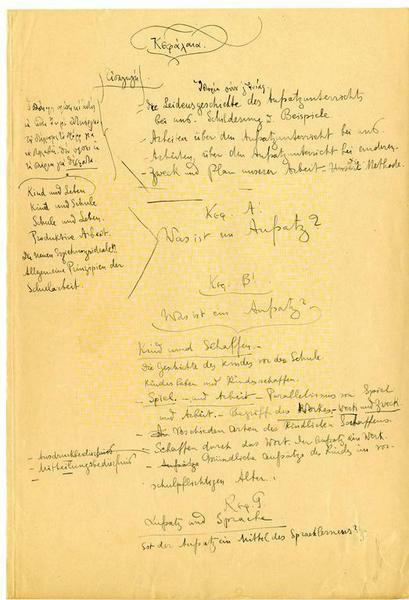 Κεφάλαια.
Εἰσαγωγή
Die Leidensgeschichte des Aufsatzunterrichts
bei uns. Schilderung u. Beispiele
- Arbeiten über den Aufsatzunterricht bei uns.
- Arbeiten über den Aufsatzunterricht bei anderen.
- Zweck und Plan unserer Arbeit - Methode.
Kind und Leben
Kind und Schule
Schule und Leben.
Produktive Arbeit.
Die neuen Erziehungsideale!!
Allgemeine Prinzipien der
Schularbeit.
Κεφ. Α'
Was ist ein Aufsatz?
Κεφ. Β'
Was ist ein Aufsatz?
Kind und Schaffen.-
Die Geschichte des Kindes vor der Schule
Kinderleben und Kinderschaffen.
- Spiel - und Arbeit - Parallelismus von Spiel
und Arbeit. - Begriff des Werkes - Werk und Zweck
- Die Verschieden Arten des kindlichen Schaffens.
- Ausdrucksbedürfnis
- Mitteilungsbedürfnis
Schaffen durch das Wort. Der Aufsatz ein Werk.
- Aufsätze Gründliche Aufsätze des Kindes im vor-
schulpflichtigen Alter.
Κεφ. Γ
Aufsatz und Sprache
Ist der Aufsatz ein Mittel des Sprachlernens?